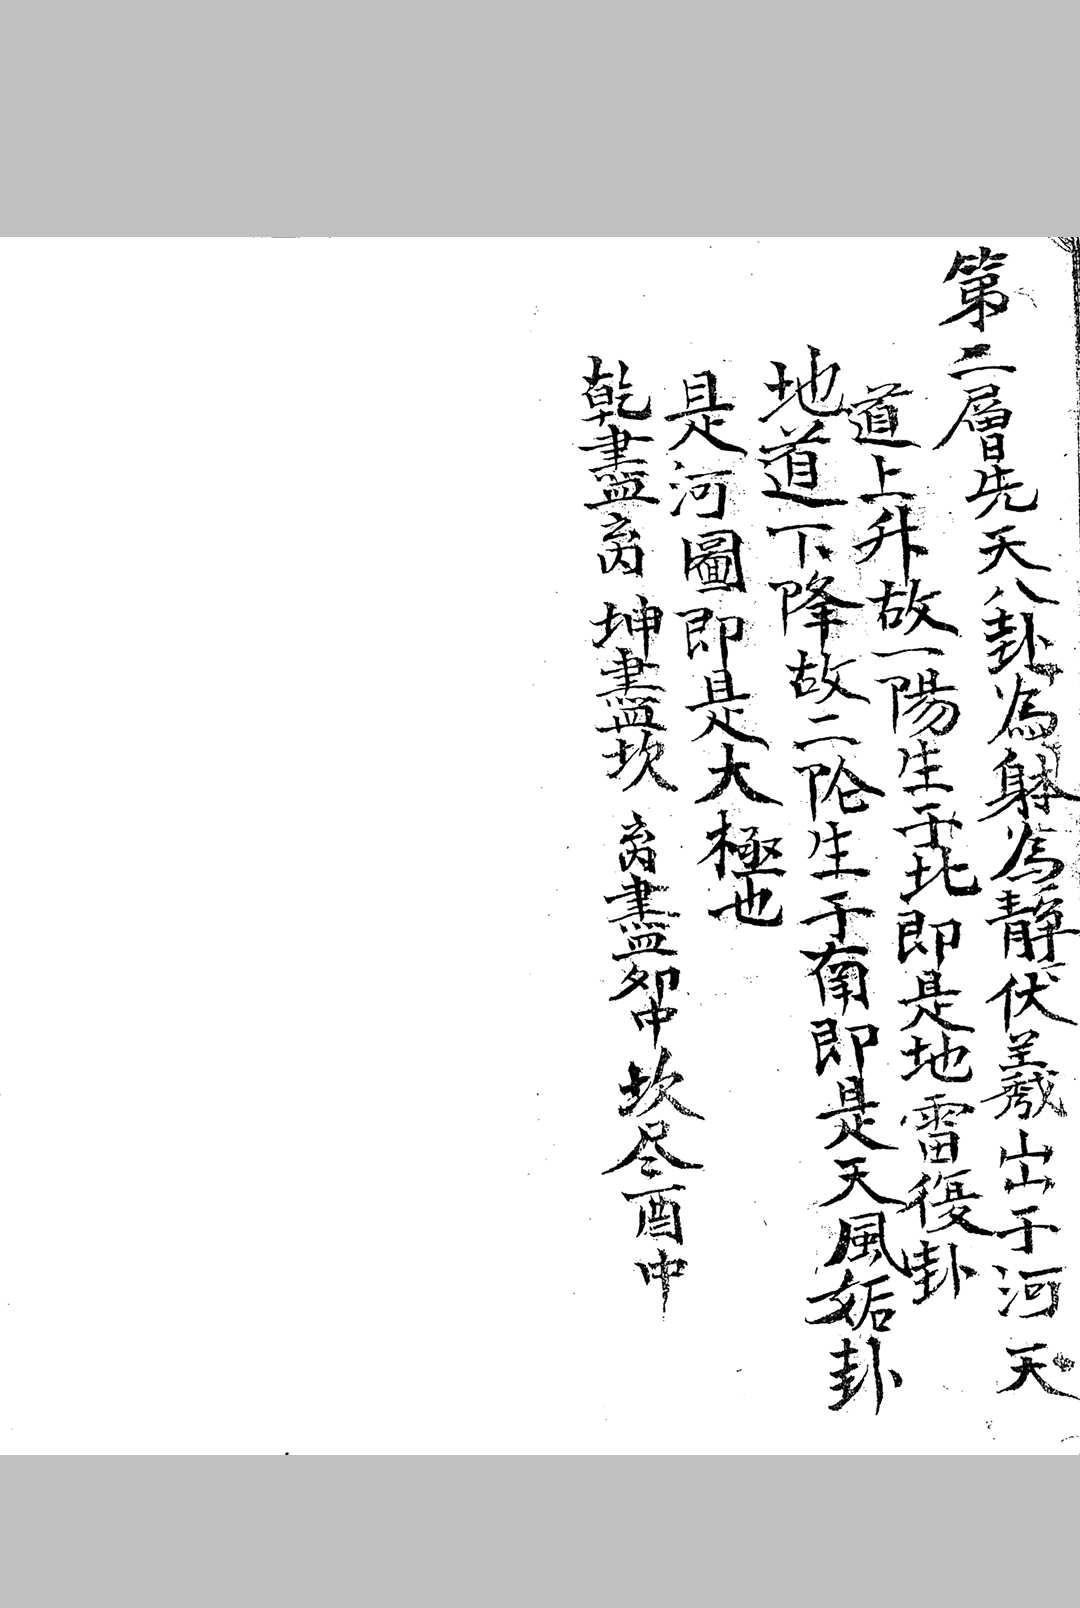 第二層先天八卦為躰為靜伏羲出于河天
道上升故一陽生于北即是地雷復卦
地道下降故二阴生于南即是天風姤卦
是河圖即是大極也
乾盡离 坤盡坎 离盡卯中坎尽酉中